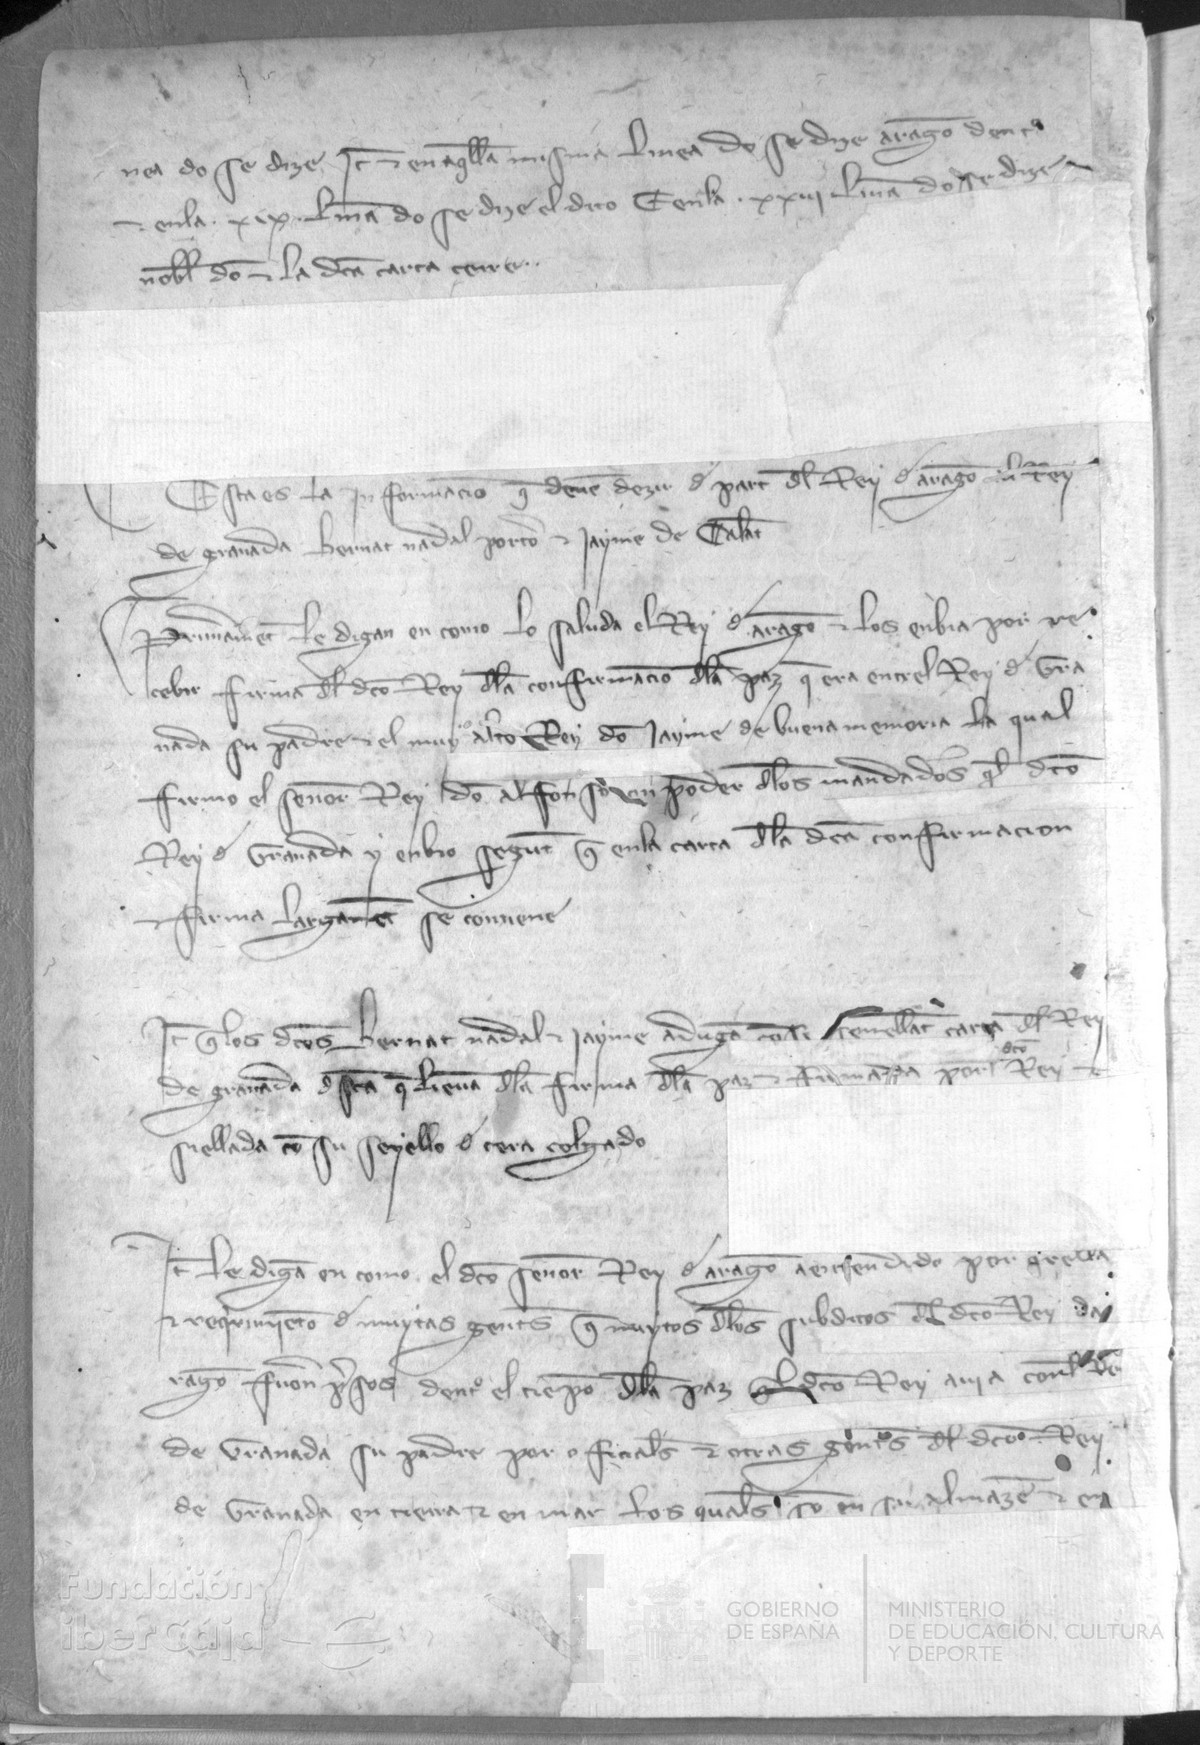 nea do se dize Jt̄ ⁊ en aq̄lla misma linea do se dize aragō dentᵒ
⁊ enla .xix. linā do se dize el dito Cenla .xxiij linā do se dize
nōbl dō ⁊ la dcā carta
Esta es la Jnformaciō q̄ deuē dezir ď part dl̄ Rey ď aragō al Rey
de granada bernat nadal porto ⁊ Jayme de Calat
Primāmēt le digan en como lo saluda el Rey ď aragō ⁊ los enbia por re
cebir firma dl̄ dcō Rey dl̄a confirmaciō dl̄a paz q̄ era entrel Rey ď Gra
nada su padre ⁊ el muy alto Rey dō Jayme de buena memoria la qual
firmo el senor Rey dō alfonso en poder dl̄os mandadōs q̄l dcō
Rey ď Granada y enbio segūt q̄ enla carta dl̄a dcā confirmacion
⁊ firma largamēt se contiene
Jt̄ q̄ los dcōs bernat nadal ⁊ Jayme adugā semellāt carta dl̄ Rey
de granada dsta q̄ lieuā dl̄a firma dl̄a paz ⁊ firmada porl dcō Rey ⁊
siellada cō su seyello ď cera colgado
Jt̄ le digā en como el dcō senor Rey ď aragō a entendido por q̄rella
⁊ reqrimiēto ď muytas gents q̄ muytos dl̄os subditos dl̄ dcō Rey da
ragō fuōn p̄sos dentᵒ el tiēpo dl̄a paz q̄l dcō Rey auia con el Rey
de Granada su padre por oficials ⁊ otras gents dl̄ dcō Rey
de Granada en tierra ⁊ en mar los quals sō en su almazē ⁊ en
Fundación
iberCaja
GOBIERNO
DE ESPAÑA
MINISTERIO
DE EDUCACIÓN, CULTURA
Y DEPORTE